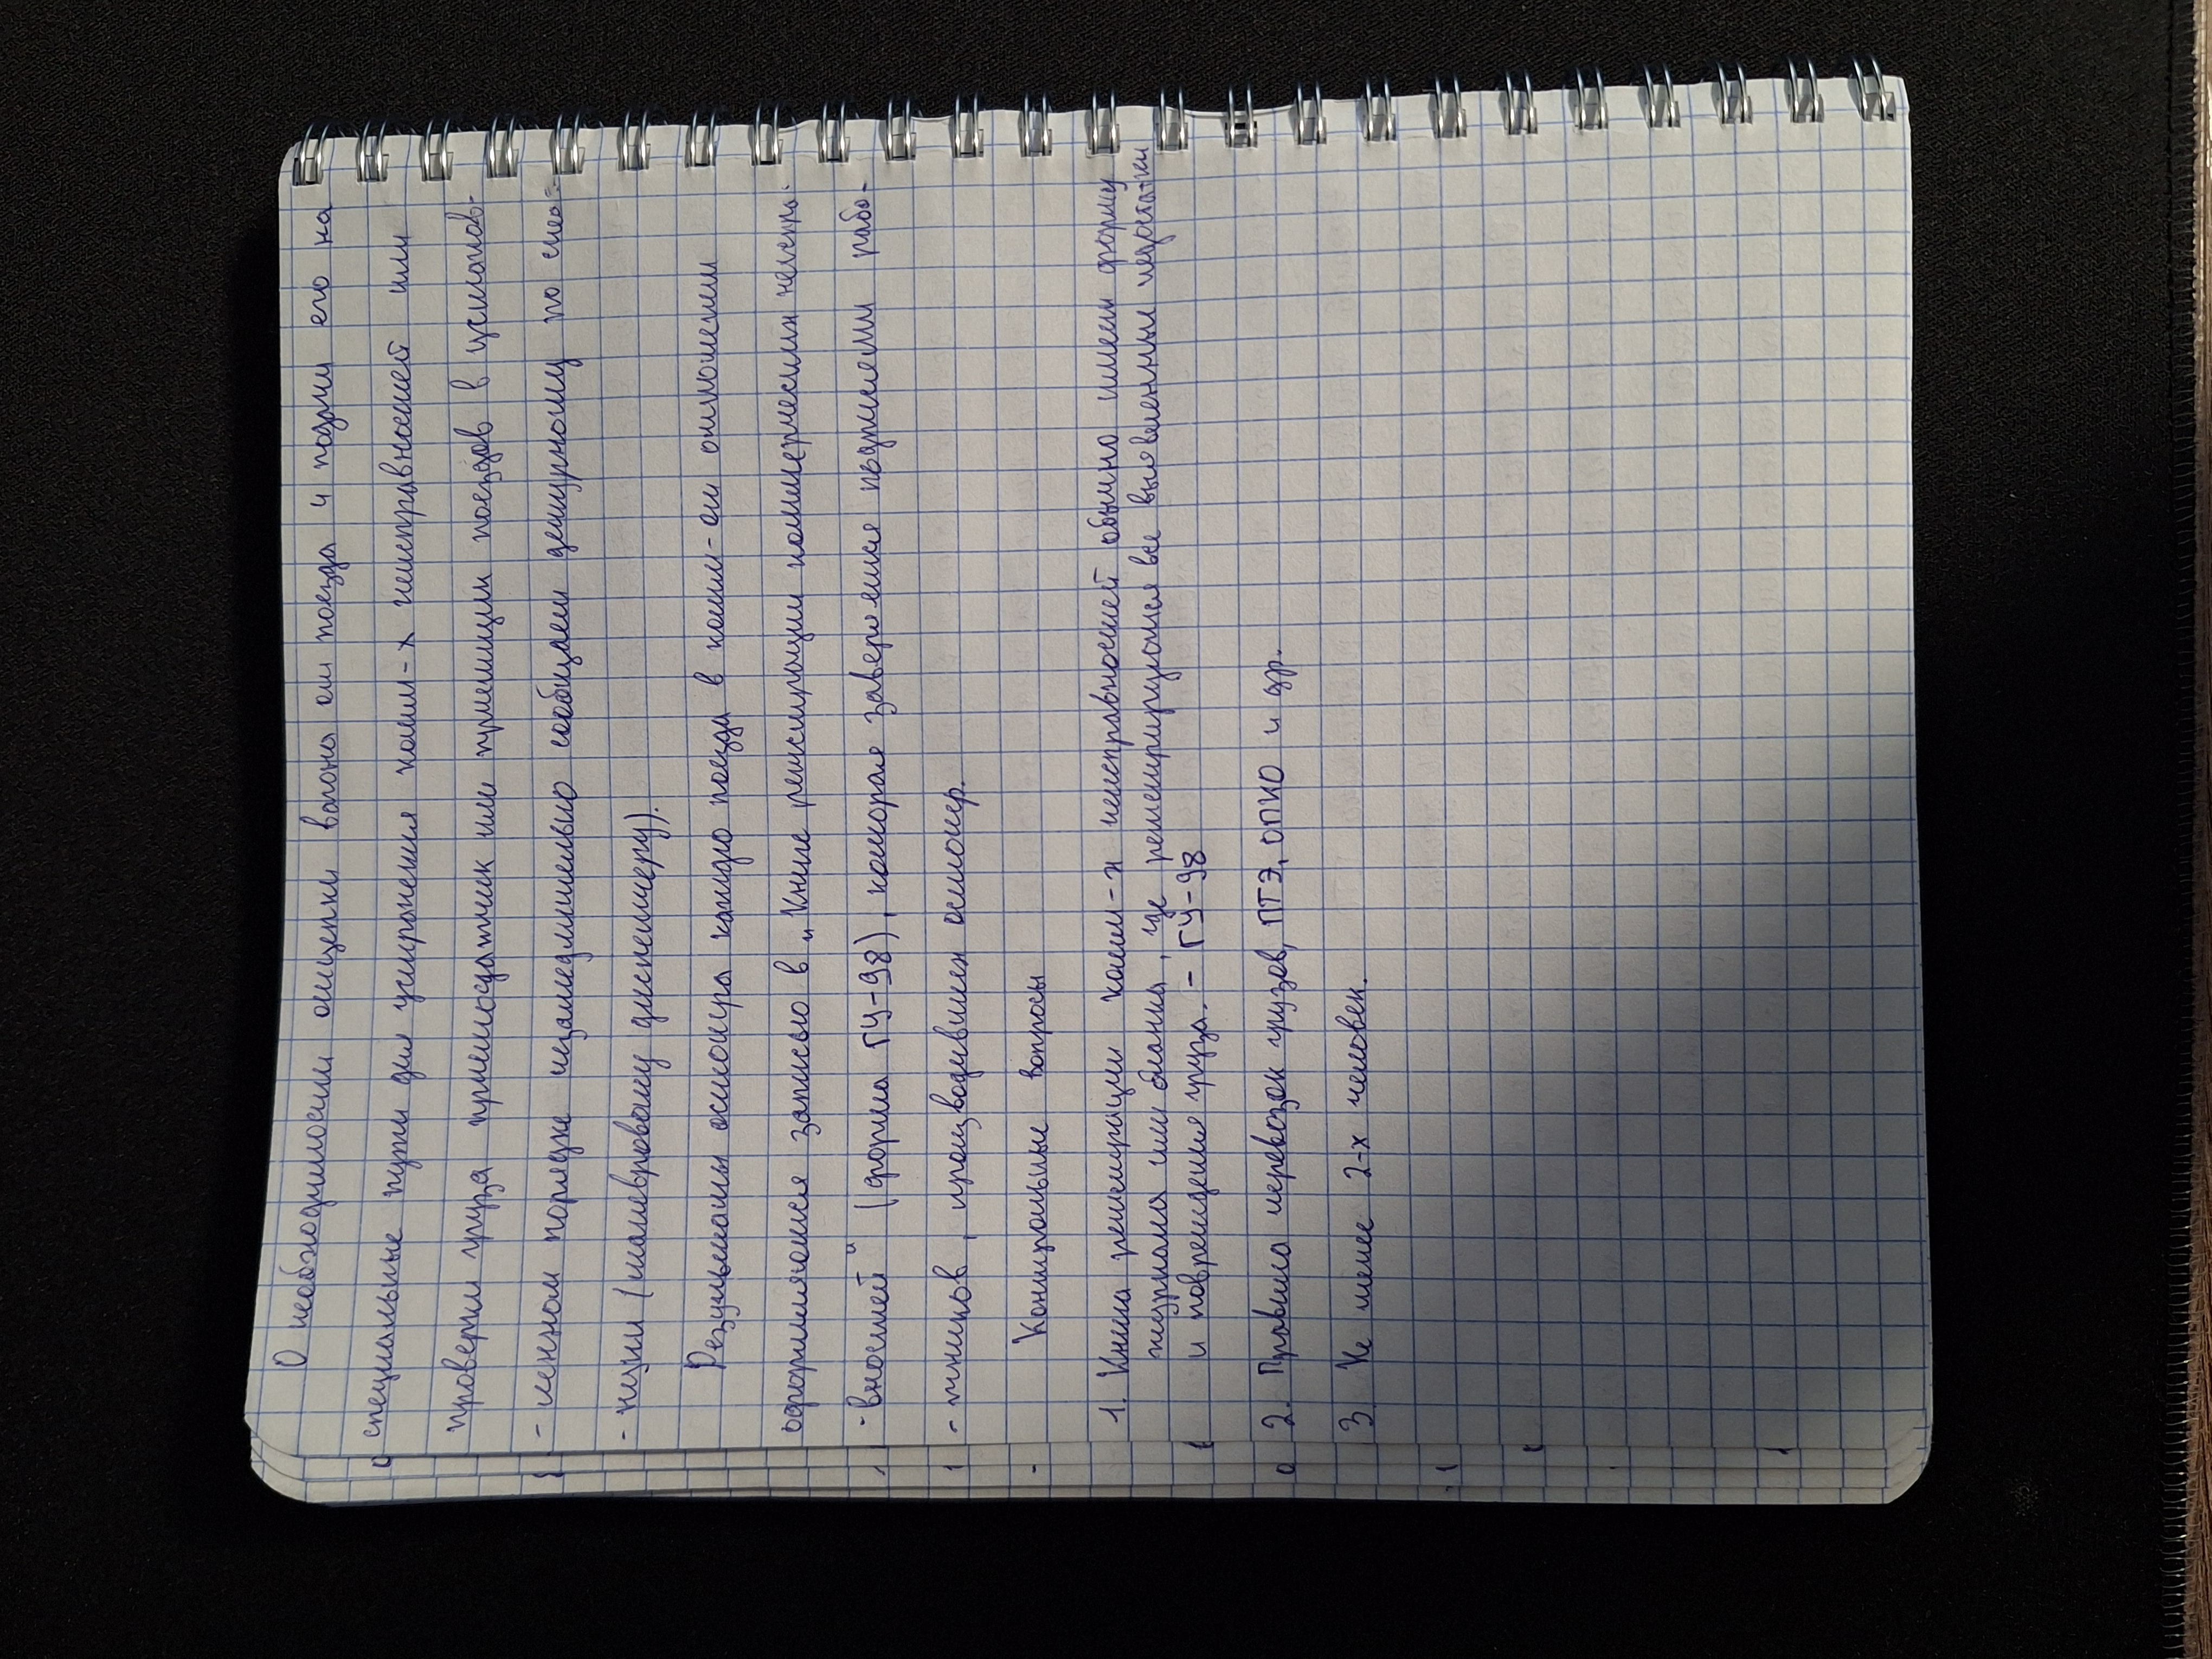 О необходимости отцепки вагона от поезда и подачи его на
специальные пути для устранения комм-х неисправностей или
проверки груза приемосдатчик или приемщик поездов в установ-
-ленном порядке незамедлительно сообщает дежурному по ста-
-нции (маневровому диспетчеру).
Результаты осмотра каждого поезда в комм-ом отношении
оформляются записью в „Книге регистрации коммерческих неиспра-
-вностей" (форма ГУ-98), которая заверяется подписями рабо-
-тников, производивших осмотр.
Контрольные вопросы
1. Книга регистрации комм-х неисправностей обычно имеет форму
журнала или бланка, где регистрируются все выявленные недостатки
и повреждения груза. - ГУ-98
2. Правила перевозок грузов, ПТЭ, ОПКО и др.
3. Не менее 2-х человек.